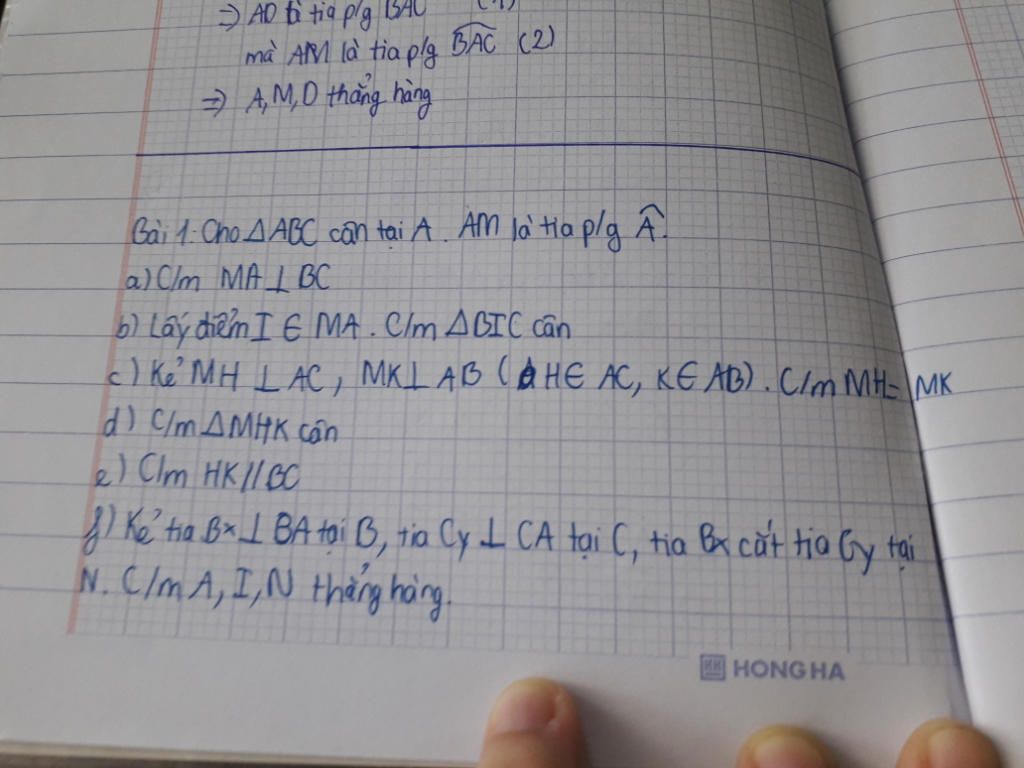 ⇒ AD là tia p/g BAC (1)
mà AM là tia p/g BAC (2)
⇒ A, M, D thẳng hàng
Bài 1: Cho △ABC cân tại A. AM là tia p/g Â.
a) C/m MA ⊥ BC
b) Lấy điểm I ∈ MA. C/m △BIC cân
c) Kẻ MH ⊥ AC, MK ⊥ AB (H ∈ AC, K ∈ AB). C/m MH = MK
d) C/m △MHK cân
e) C/m HK // BC
f) Kẻ tia Bx ⊥ BA tại B, tia Cy ⊥ CA tại C, tia Bx cắt tia Cy tại
N. C/m A, I, N thẳng hàng.
HONG HA